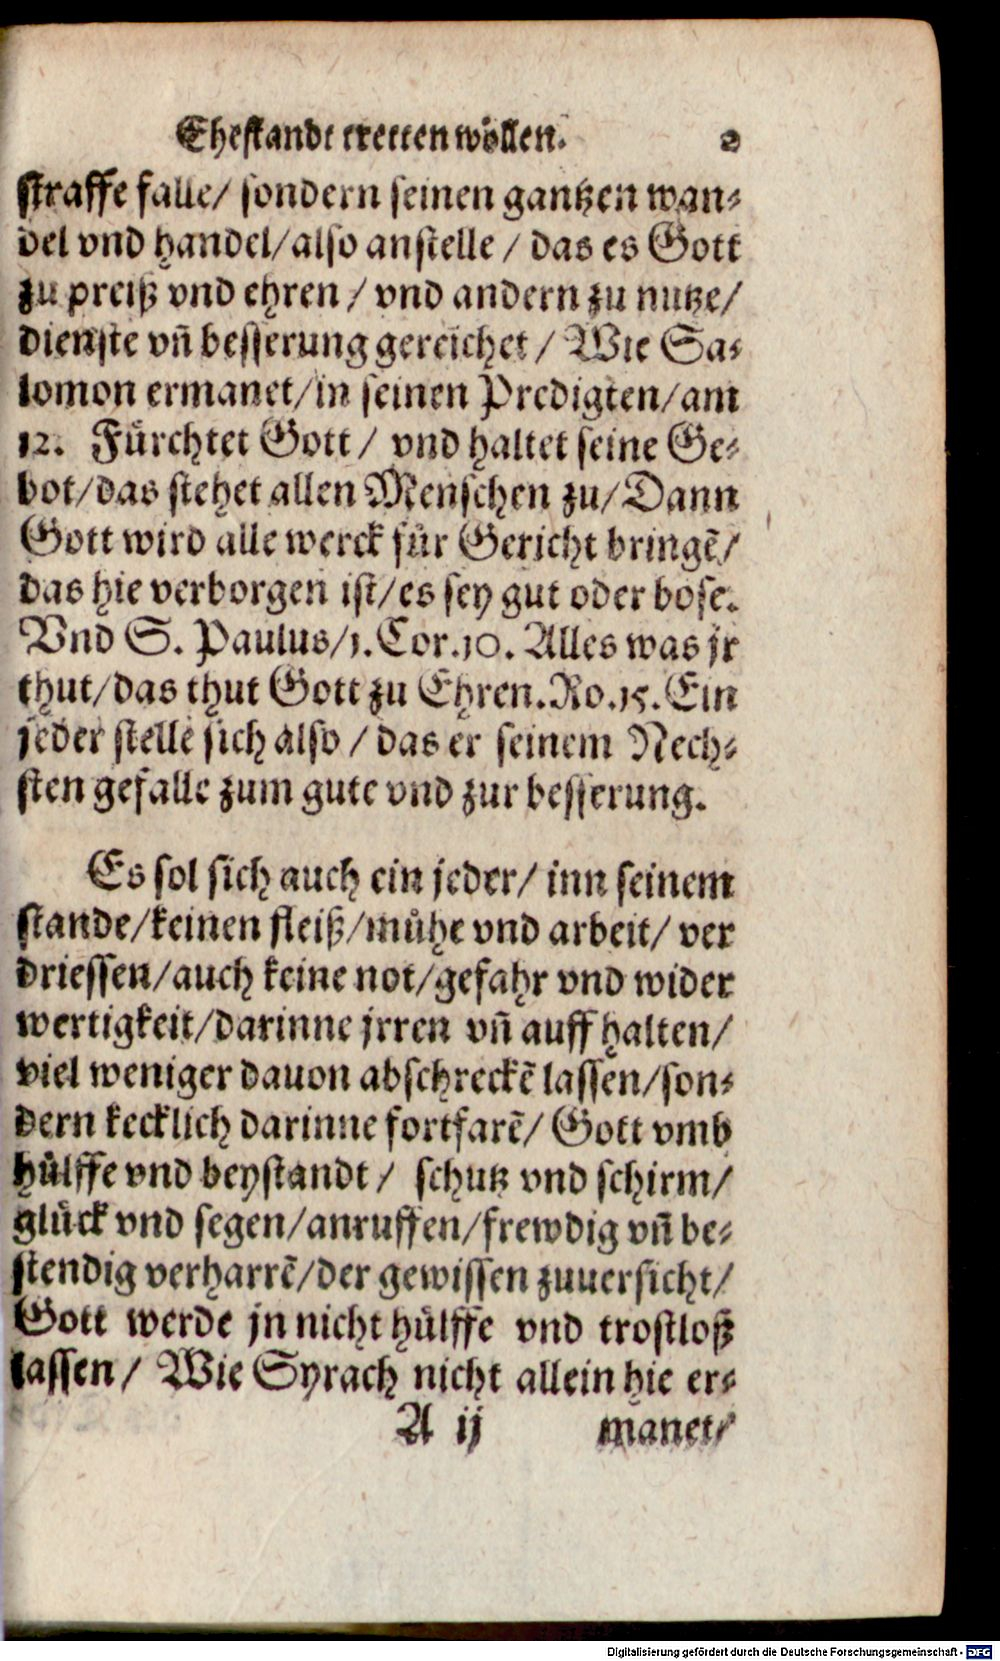 Ehestandt tretten wöllen. 2
straffe falle/ sondern seinen gantzen wan-
del vnd handel/also anstelle / das es Gott
zu preiß vnd ehren / vnd andern zu nutze/
dienste vñ besserung gereichet / Wie Sa-
lomon ermanet/in seinen Predigten/am
12. Fürchtet Gott / vnd haltet seine Ge-
bot/das stehet allen Menschen zu/Dann
Gott wird alle werck für Gericht bringẽ/
das hie verborgen ist/es sey gut oder bose.
Vnd S. Paulus/1.Cor.10. Alles was jr
thut/das thut Gott zu Ehren.Ro.15.Ein
jeder stelle sich also / das er seinem Nech-
sten gefalle zum gute vnd zur besserung.
Es sol sich auch ein jeder/ inn seinem
stande/keinen fleiß/mühe vnd arbeit/ ver
driessen/auch keine not/gefahr vnd wider
wertigkeit/darinne jrren vñ auff halten/
viel weniger dauon abschreckẽ lassen/son-
dern kecklich darinne fortfarẽ/ Gott vmb
hülffe vnd beystandt / schutz vnd schirm/
glück vnd segen/anruffen/frewdig vñ be-
stendig verharrẽ/der gewissen zuuersicht/
Gott werde jn nicht hülffe vnd trostloß
lassen / Wie Syrach nicht allein hie er-
A ij manet/
Digitalisierung gefördert durch die Deutsche Forschungsgemeinschaft - DFG